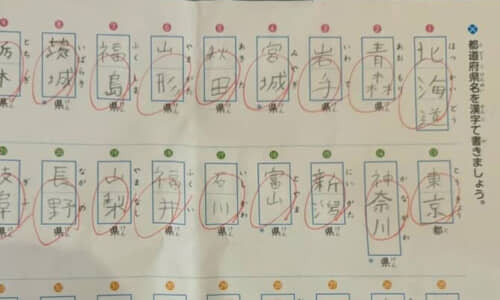 都道府県名を漢字で書きましょう。
ほっかいどう
北海道
あおもり
青森県
いわて
岩手県
みやぎ
宮城県
あきた
秋田県
やまがた
山形県
ふくしま
福島県
いばらき
茨城県
とちぎ
栃木県
とうきょう
東京都
かながわ
神奈川県
にいがた
新潟県
とやま
富山県
いしかわ
石川県
ふくい
福井県
やまなし
山梨県
ながの
長野県
ぎふ
岐阜